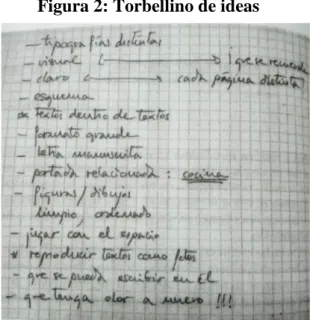 Figura 2: Torbellino de ideas
- tipografías distintas
- visual ¡que se recuerde
- claro cada página distinta
- esquema
textos dentro de textos
- formato grande
- letra manuscrita
- portada relacionada: cocina
- figuras/dibujos
limpio, ordenado
- jugar con el espacio
* reproducir textos como fotos
- que se pueda escribir en ÉL
- que tenga olor a nuevo!!!